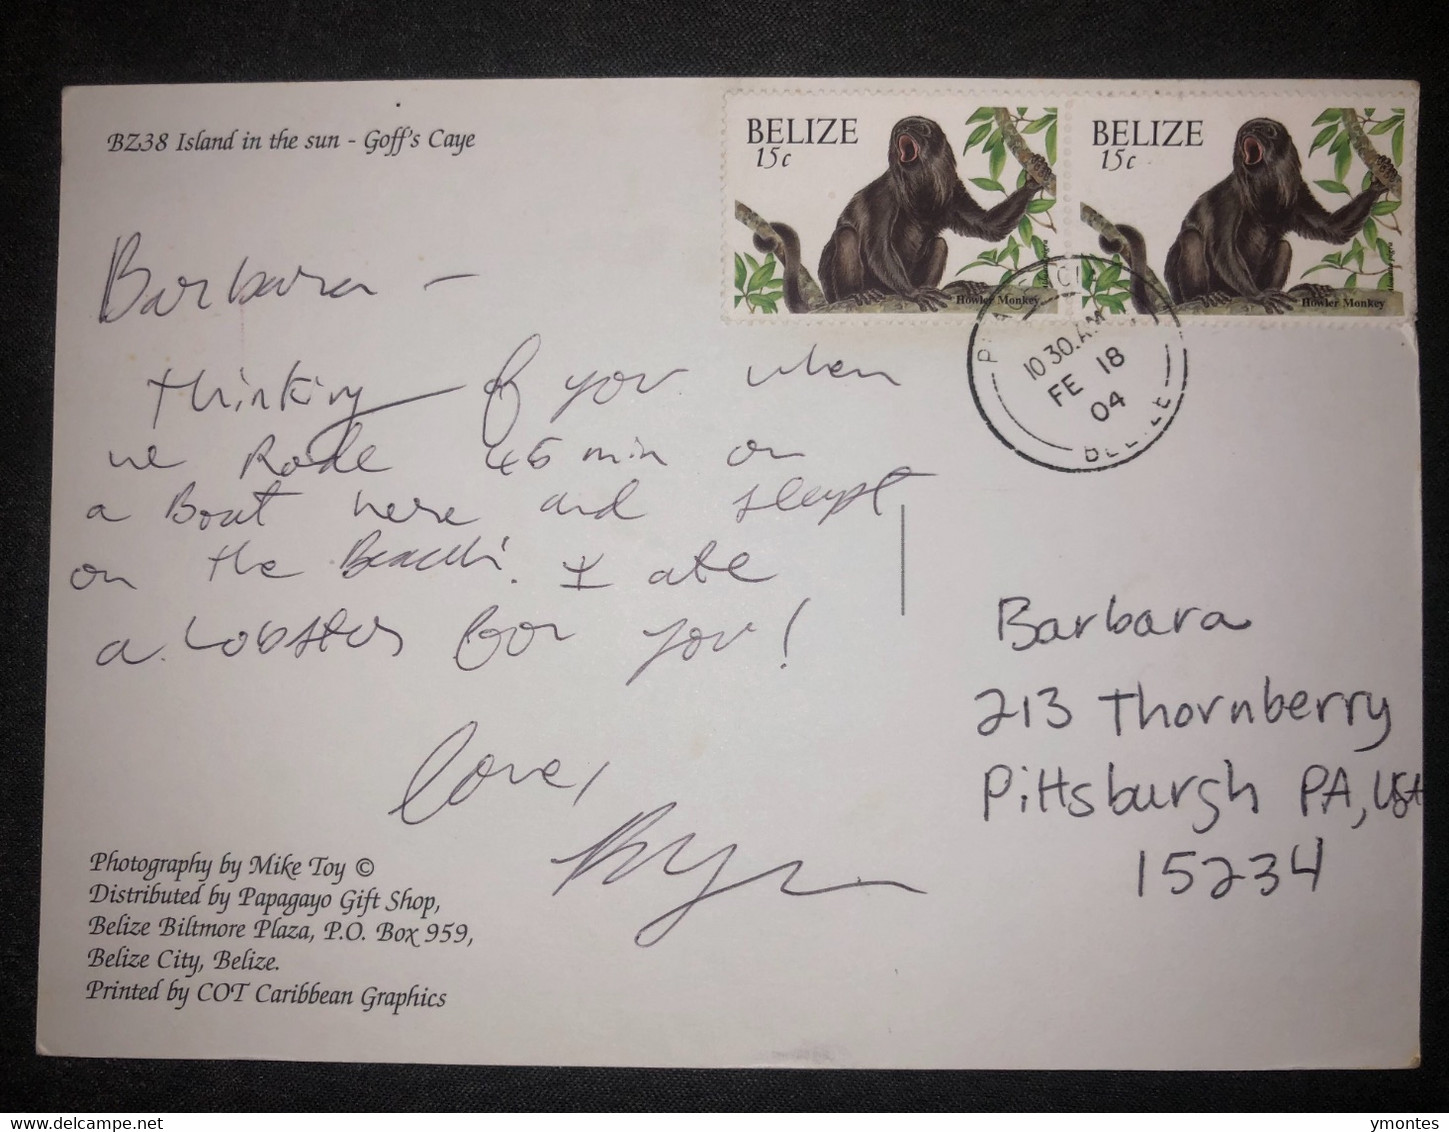 BZ38 Island in the sun - Goff's Caye
BELIZE
15c
Howler Monkey
BELIZE
15c
Howler Monkey
10 30.AM
FE 18
04
BELIZE
Barbara -
Thinking of you when
we Rode 45 min on
a Boat here and slept
on the Beach! I ate
a Lobster for you!
Love,
Barbara
213 Thornberry
Pittsburgh PA, USA
15234
Photography by Mike Toy ©
Distributed by Papagayo Gift Shop,
Belize Biltmore Plaza, P.O. Box 959,
Belize City, Belize.
Printed by COT Caribbean Graphics
delcampe.net
ymontes